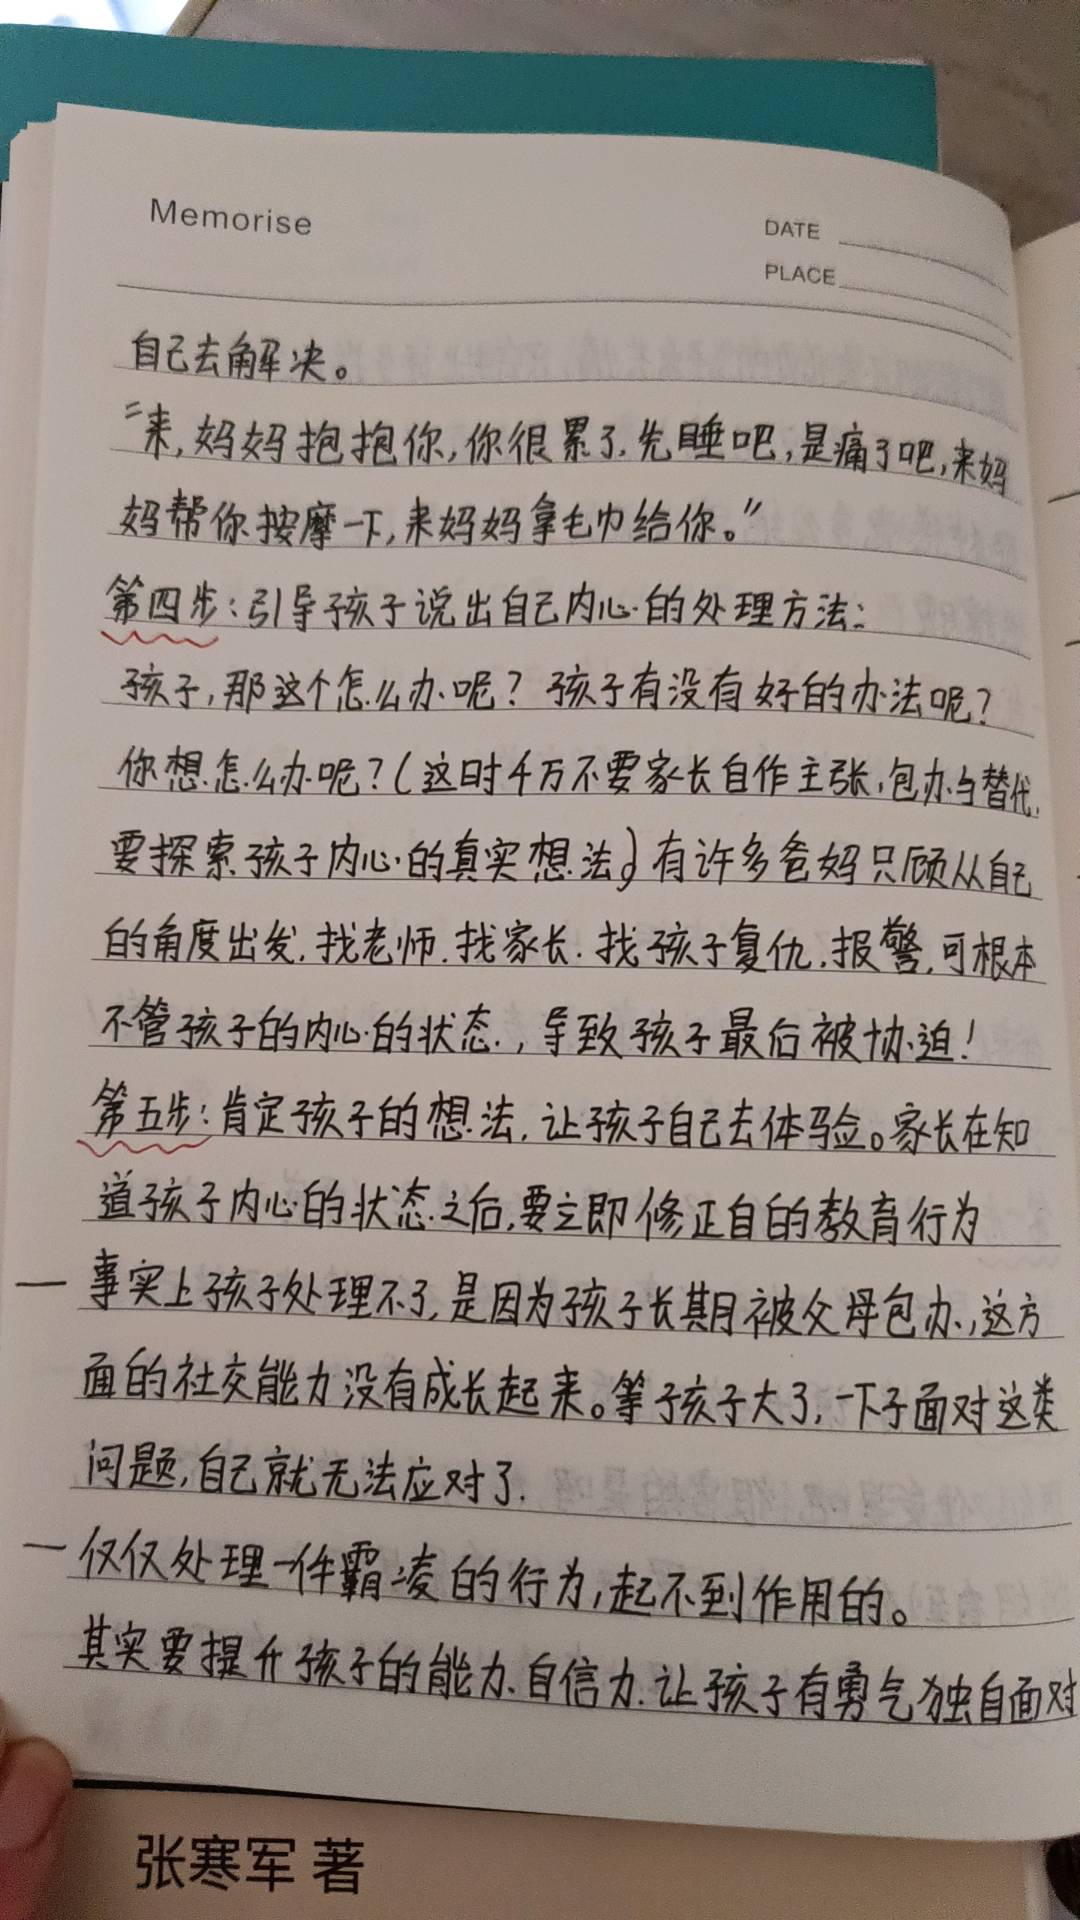 Memorise
DATE
PLACE
自己去解决。
“来,妈妈抱抱你,你很累了,先睡吧,是痛了吧,来妈
妈帮你按摩一下,来妈妈拿毛巾给你。”
第四步:引导孩子说出自己内心的处理方法:
孩子,那这个怎么办呢?孩子有没有好的办法呢?
你想怎么办呢?(这时千万不要家长自作主张,包办与替代,
要探索孩子内心的真实想法)有许多爸妈只顾从自己
的角度出发,找老师.找家长.找孩子复仇.报警,可根本
不管孩子的内心的状态.,导致孩子最后被协迫!
第五步:肯定孩子的想法,让孩子自己去体验。家长在知
道孩子内心的状态之后,要立即修正自的教育行为
— 事实上孩子处理不了,是因为孩子长期被父母包办,这方
面的社交能力没有成长起来。等孩子大了,一下子面对这类
问题,自己就无法应对了.
— 仅仅处理一件霸凌的行为,起不到作用的。
其实要提升孩子的能力、自信力.让孩子有勇气独自面对
张寒军 著